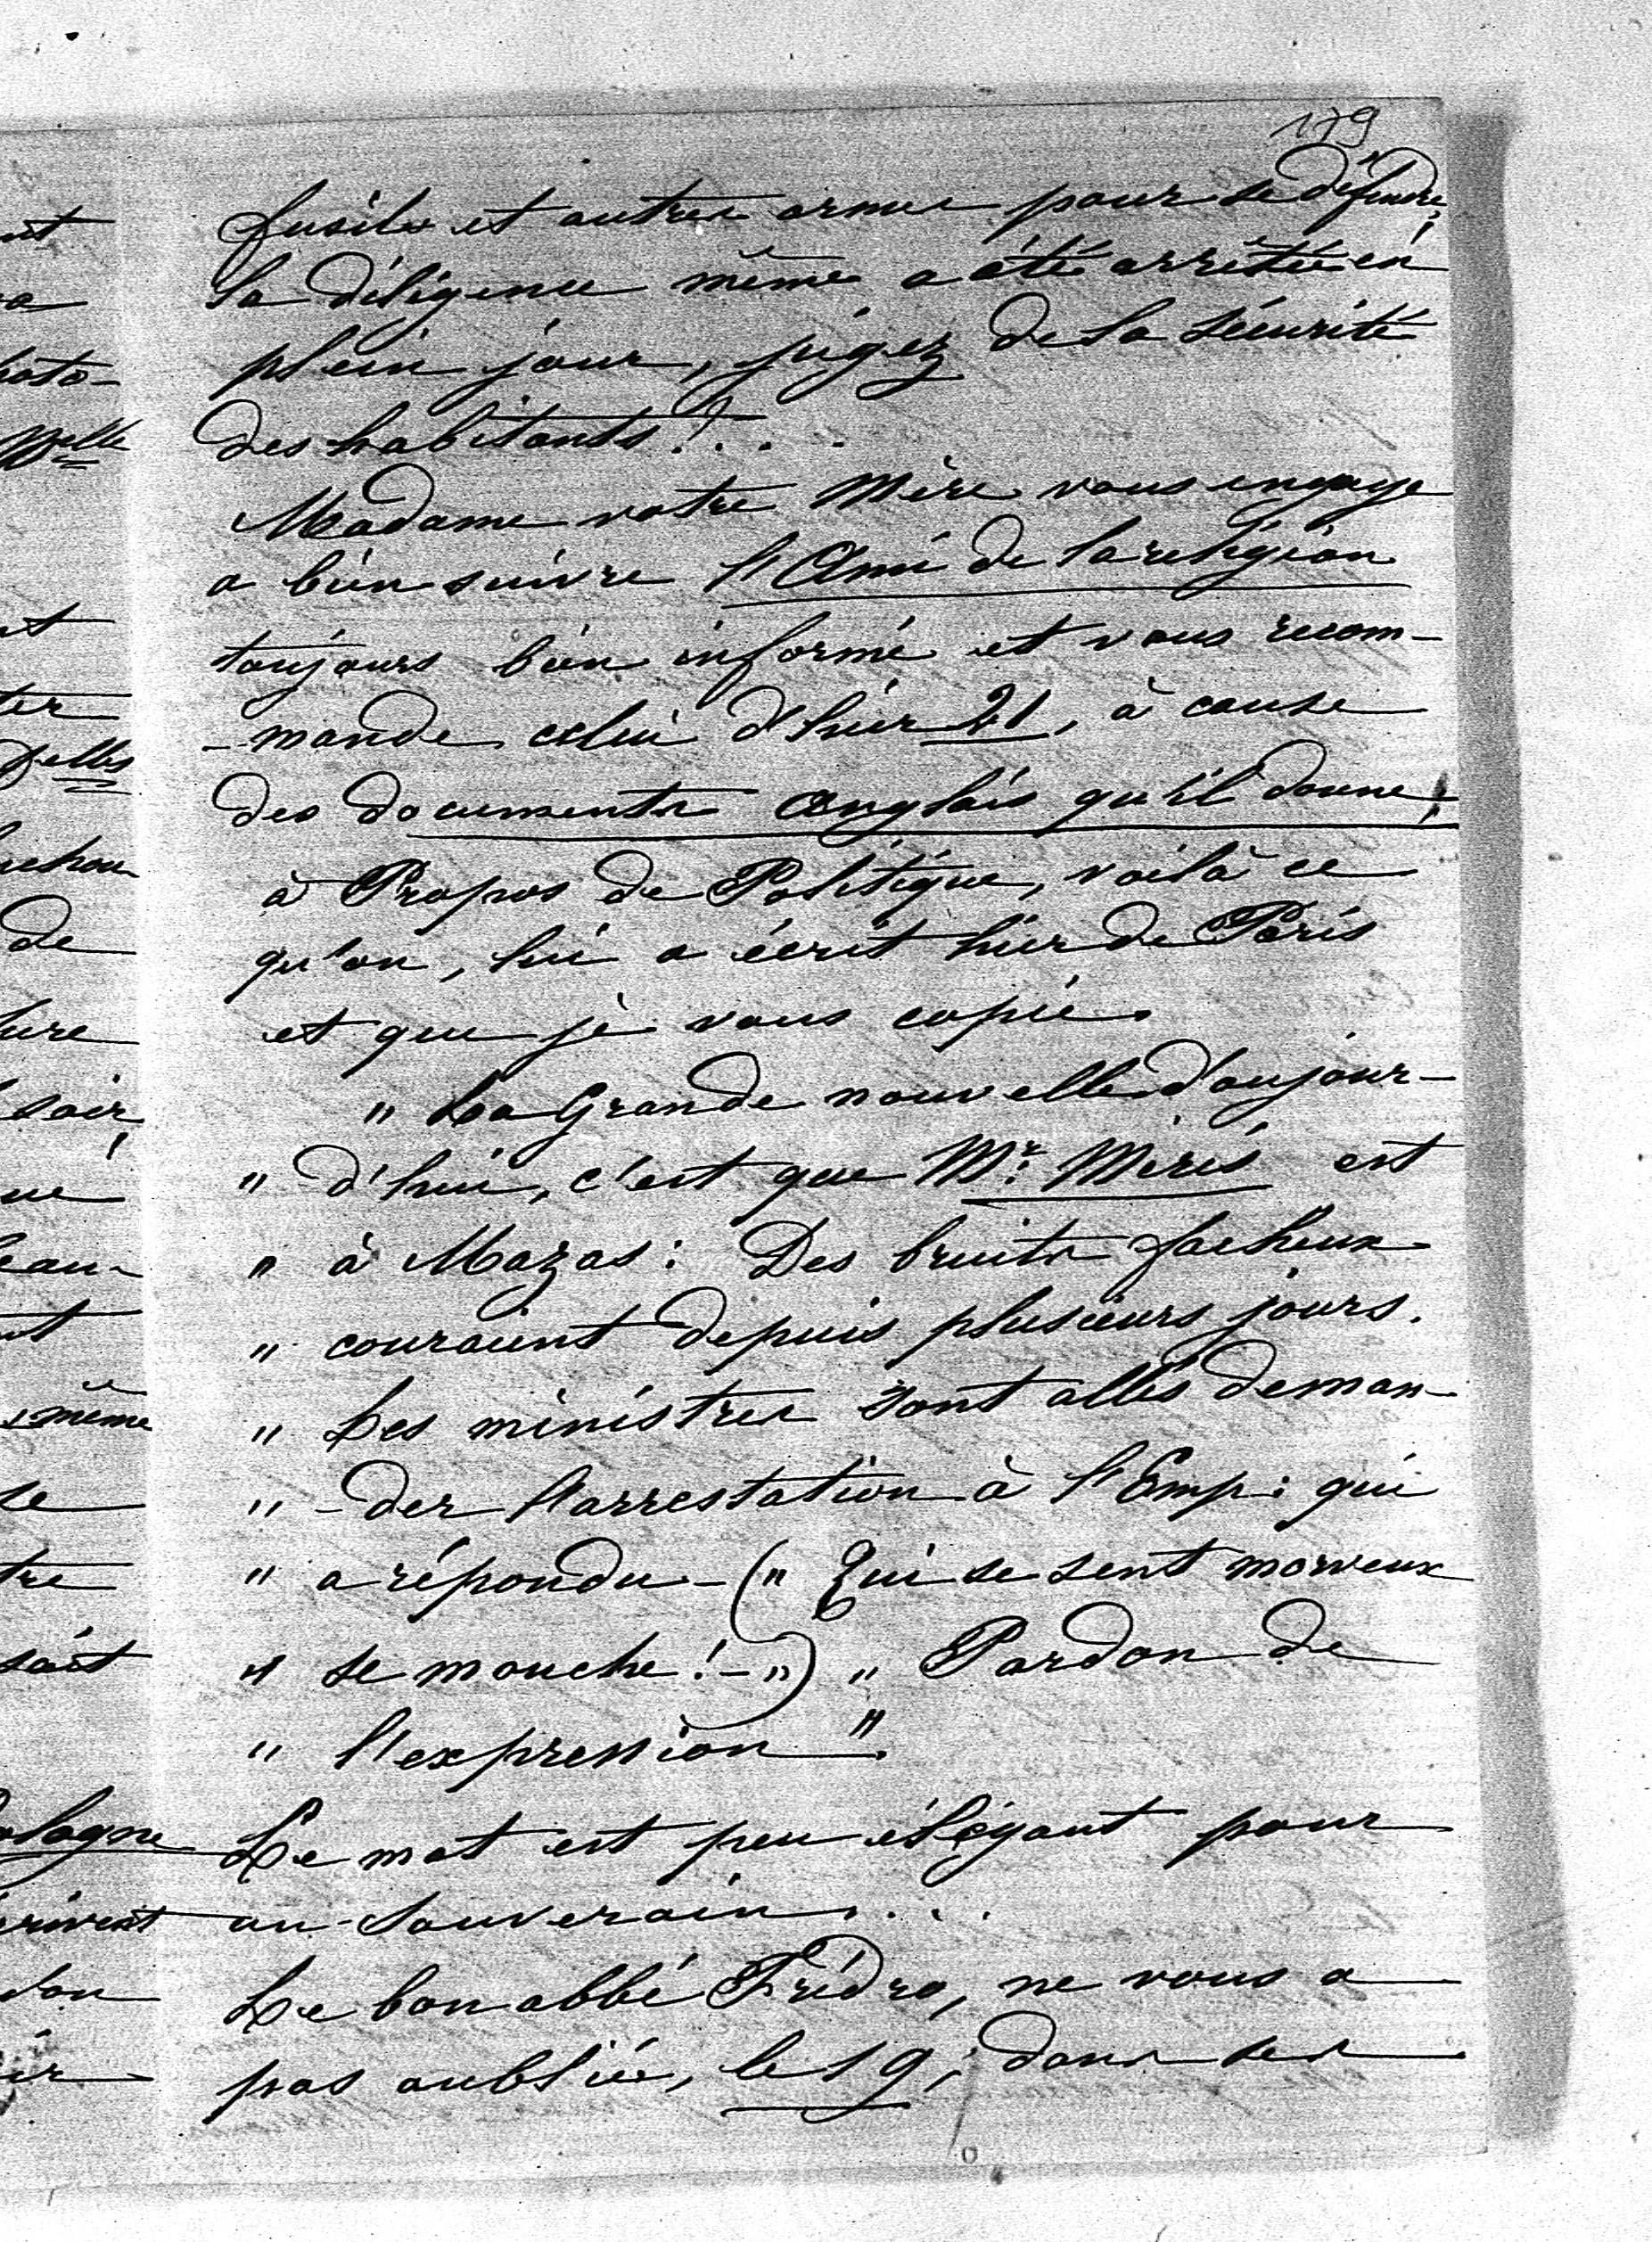 179
fusils et autres armes pour se défendre;
la diligence même a été arrêtée en
plein jour, jugez de la sécurité
des habitants!...
Madame votre Mère vous engage
a bien suivre l'Ami de la religion
toujours bien informé et vous recom-
-mande celui d'hier 21, à cause
des documents Anglais qu'il donne;
à Propos de Politique, voilà ce
qu'on, lui a écrit hier de Paris
et que je vous copie.
" La Grande nouvelle d'aujour-
" d'hui, c'est que Mr. Mirès est
" à Mazas: Des bruits facheux
" couraient depuis plusieurs jours.
" Les ministres sont allés deman-
" -der l'arrestation à l'Emp: qui
" a répondu - (" Qui se sent morveux
" se mouche! - ") " Pardon de
" l'expression ".
Le mot est peu élégant pour
un Souverain....
Le bon abbé Frédro, ne vous a
pas oubliée, le 19, dans ses